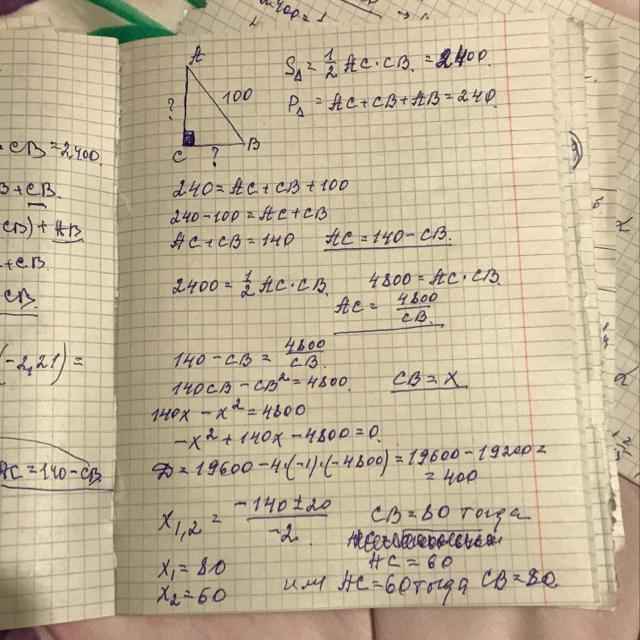 A
? 100
C ? B
S△ = 1/2 AC·CB = 2400
P△ = AC+CB+AB=240
240=AC+CB+100
240-100=AC+CB
AC+CB=140 AC=140-CB
2400=1/2 AC·CB 4800=AC·CB
AC= 4800/CB
140-CB = 4800/CB
140CB-CB²=4800 CB=x
140x-x²=4800
-x²+140x-4800=0
D=19600-4·(-1)·(-4800)=19600-19200=
=400
x1,2 = -140±20/-2
CB=80 тогда
AC=60
x1=80
x2=60
или AC=60 тогда CB=80
CB=2400
+CB
CB)+AB
+CB
CB
(-2,21)=
AC=140-CB